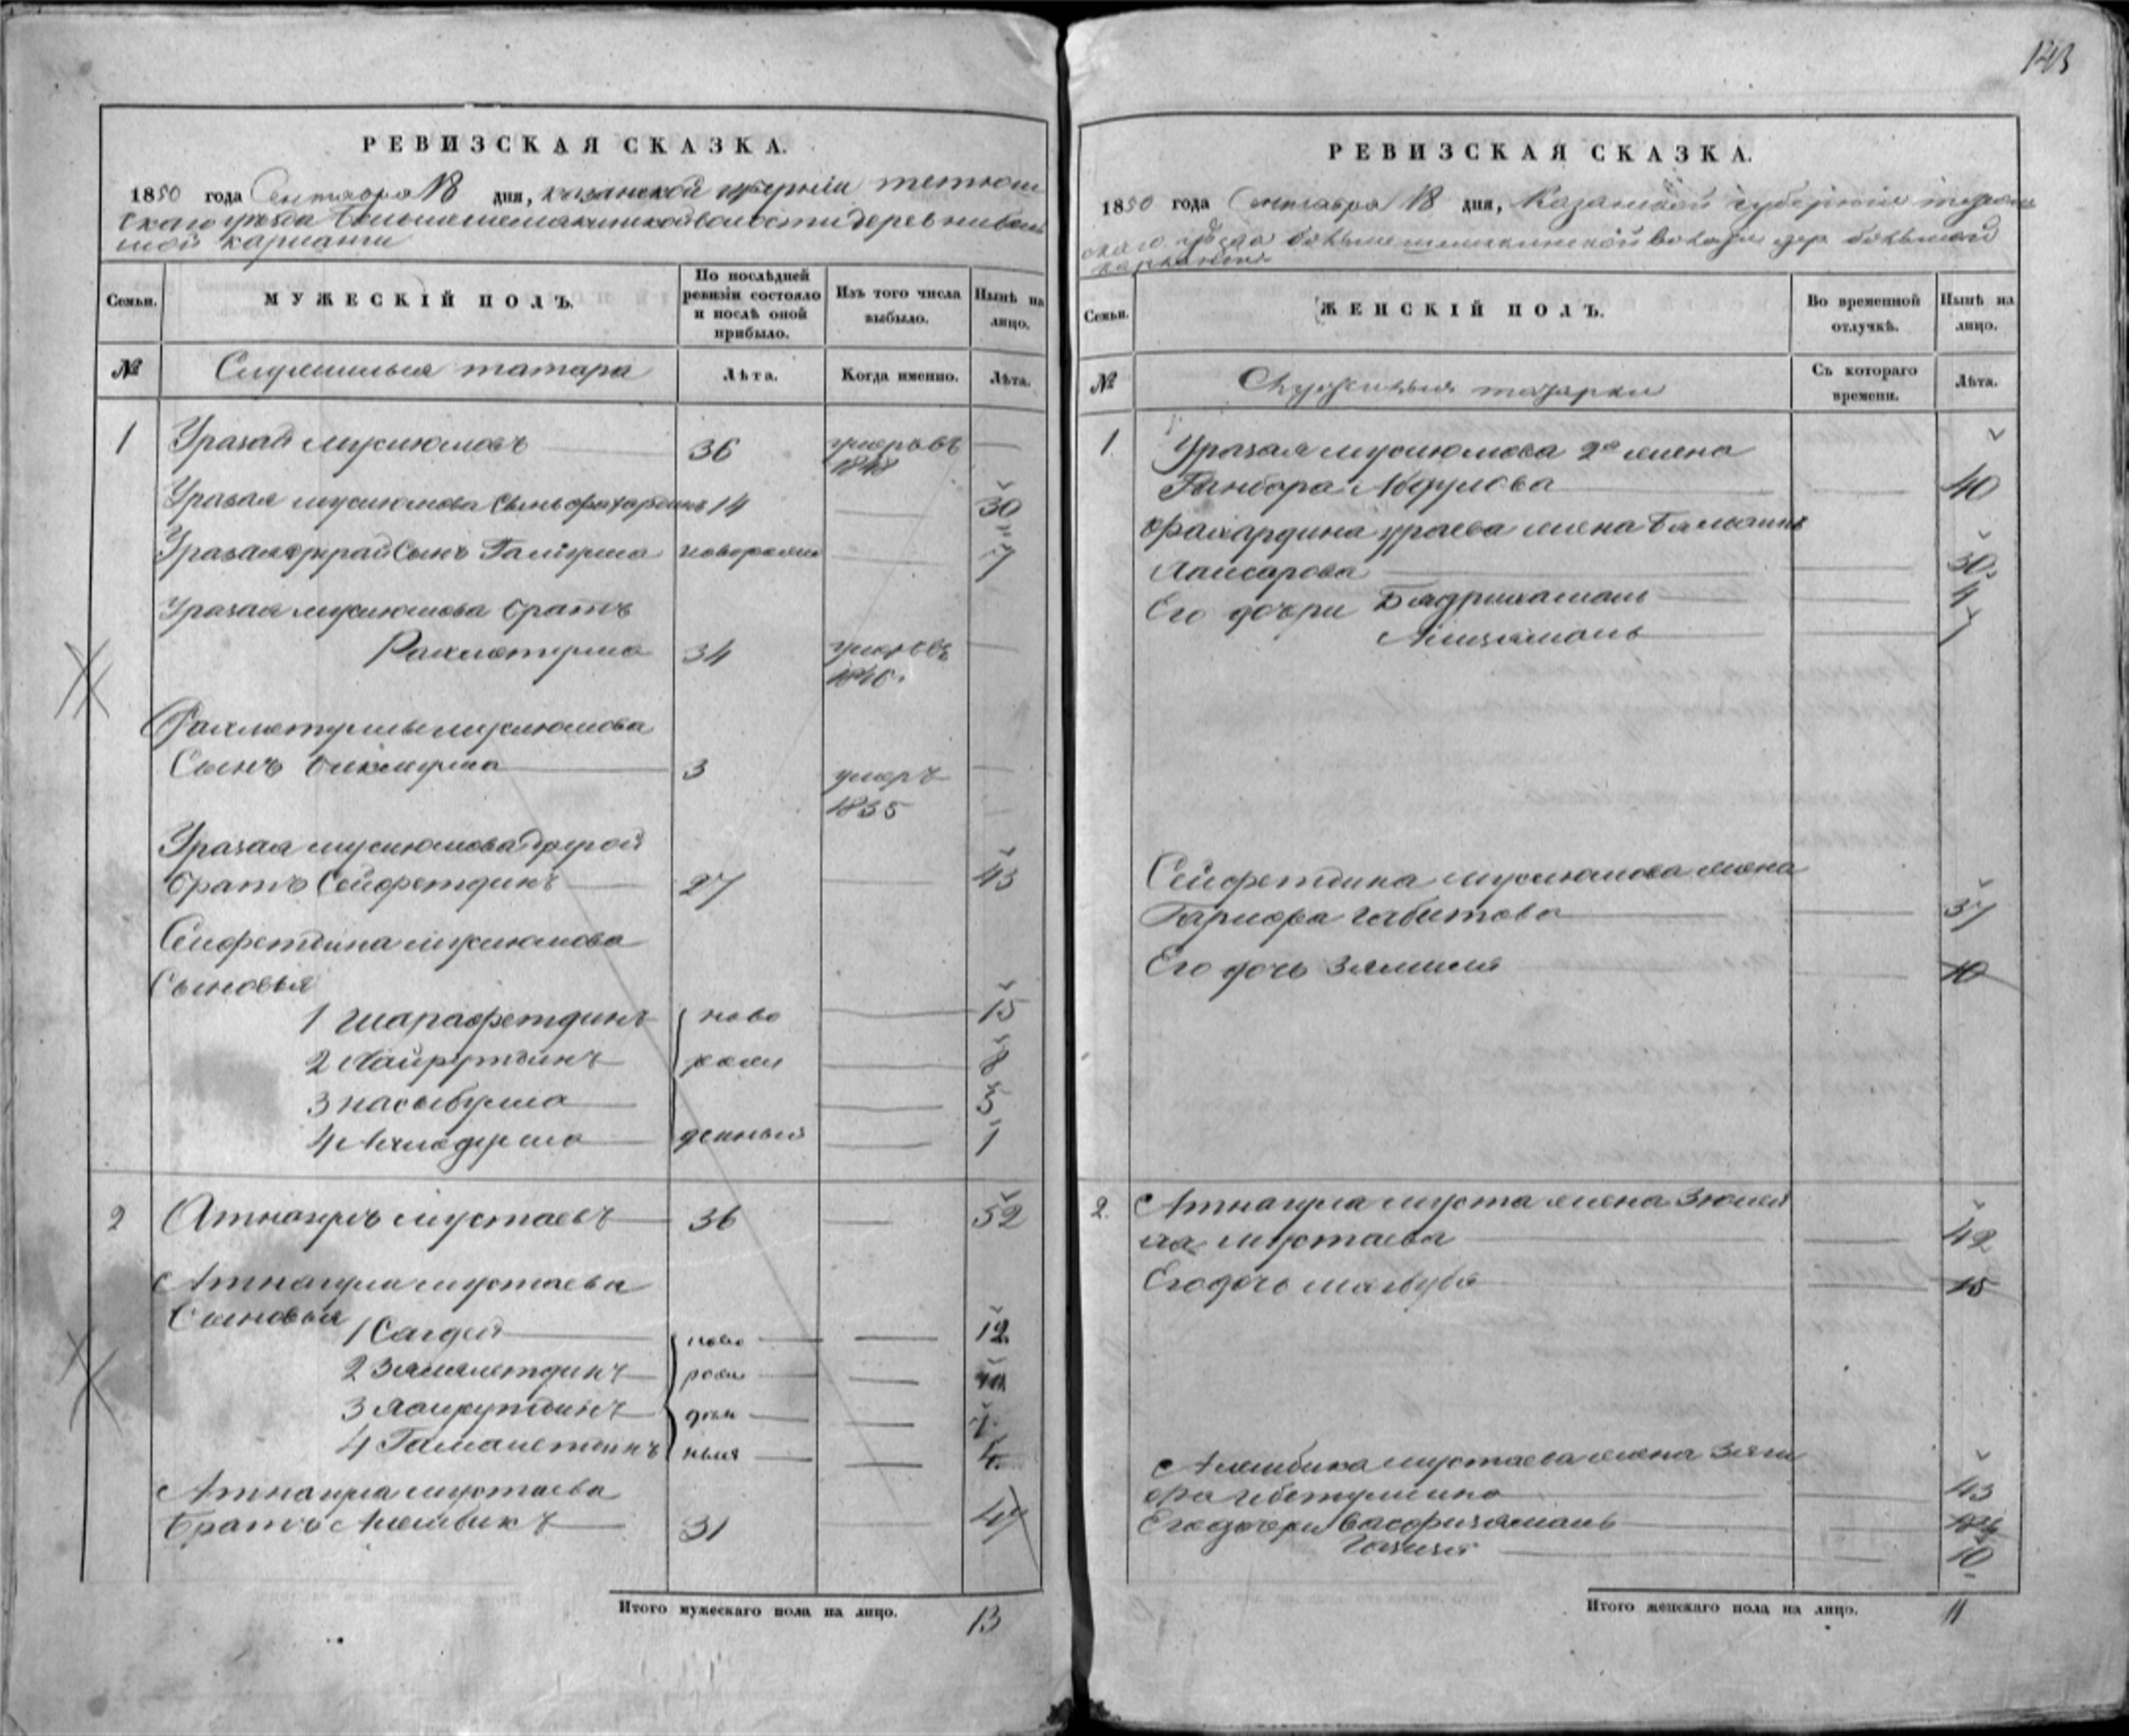 РЕВИЗСКАЯ СКАЗКА.
1850 года Сентября 18 дня, казанской губерніи тетюш
скаго уезда большешемякинской волости деревни боль
шой карланги
Семьи.
МУЖЕСКІЙ ПОЛЪ.
По послѣдней ревизіи состояло и послѣ оной прибыло.
Изъ того числа выбыло.
Нынѣ на лицо.
№
Служилыя татара
Лѣта.
Когда именно.
Лѣта.
1 Уразай мусиюмовъ 36 умеръ въ
1848
Уразая мусиюмова Сынъ фахардинъ 14 30
Уразая Сынъ новорож 7
Уразая мусиюмова братъ
Рахметулла 34 умеръ въ
1840.
Рахметуллы мусиюмова
Сынъ бикмулла 3 умеръ
1835
Уразая мусиюмова другой
братъ Сейфетдинъ 27 43
Сейфетдина мусиюмова
Сыновья
1 шарафетдинъ ново 15
2 Хайрутдинъ рож 8
3 насыбулла 5
4 денныя 1
2 Атнагулъ мустаевъ 36 52
Атнагула мустаева
Сыновья 1 Сагдей ново 12
2 Зямалетдинъ рож
3 хайрутдинъ ден 7
4 Гималетдинъ ныя 4
Атнагула мустаева
братъ 31 47
Итого мужескаго пола на лицо. 13
143
РЕВИЗСКАЯ СКАЗКА.
1850 года Сентября 18 дня, Казанской губерніи тетюш
скаго уѣзда большешемякинской волости дер большой
карланги
Семьи.
ЖЕНСКІЙ ПОЛЪ.
Во временной отлучкѣ.
Нынѣ на лицо.
№
Служилыя татарки
Съ котораго времени.
Лѣта.
1. Уразая мусиюмова 2я жена
Абдулова 40
фахардина ураева жена
30
Его дочри Бядриязамань 4
1
Сейфетдина мусиюмова жена
Гарифа габитова 37
Его дочь 10
2. Атнагула муста жена Зюлей
ха мустаева 42
Его дочь магбубя 15
мустаева жена
43
Его дочери
Газизя 10
Итого женскаго пола на лицо. 11